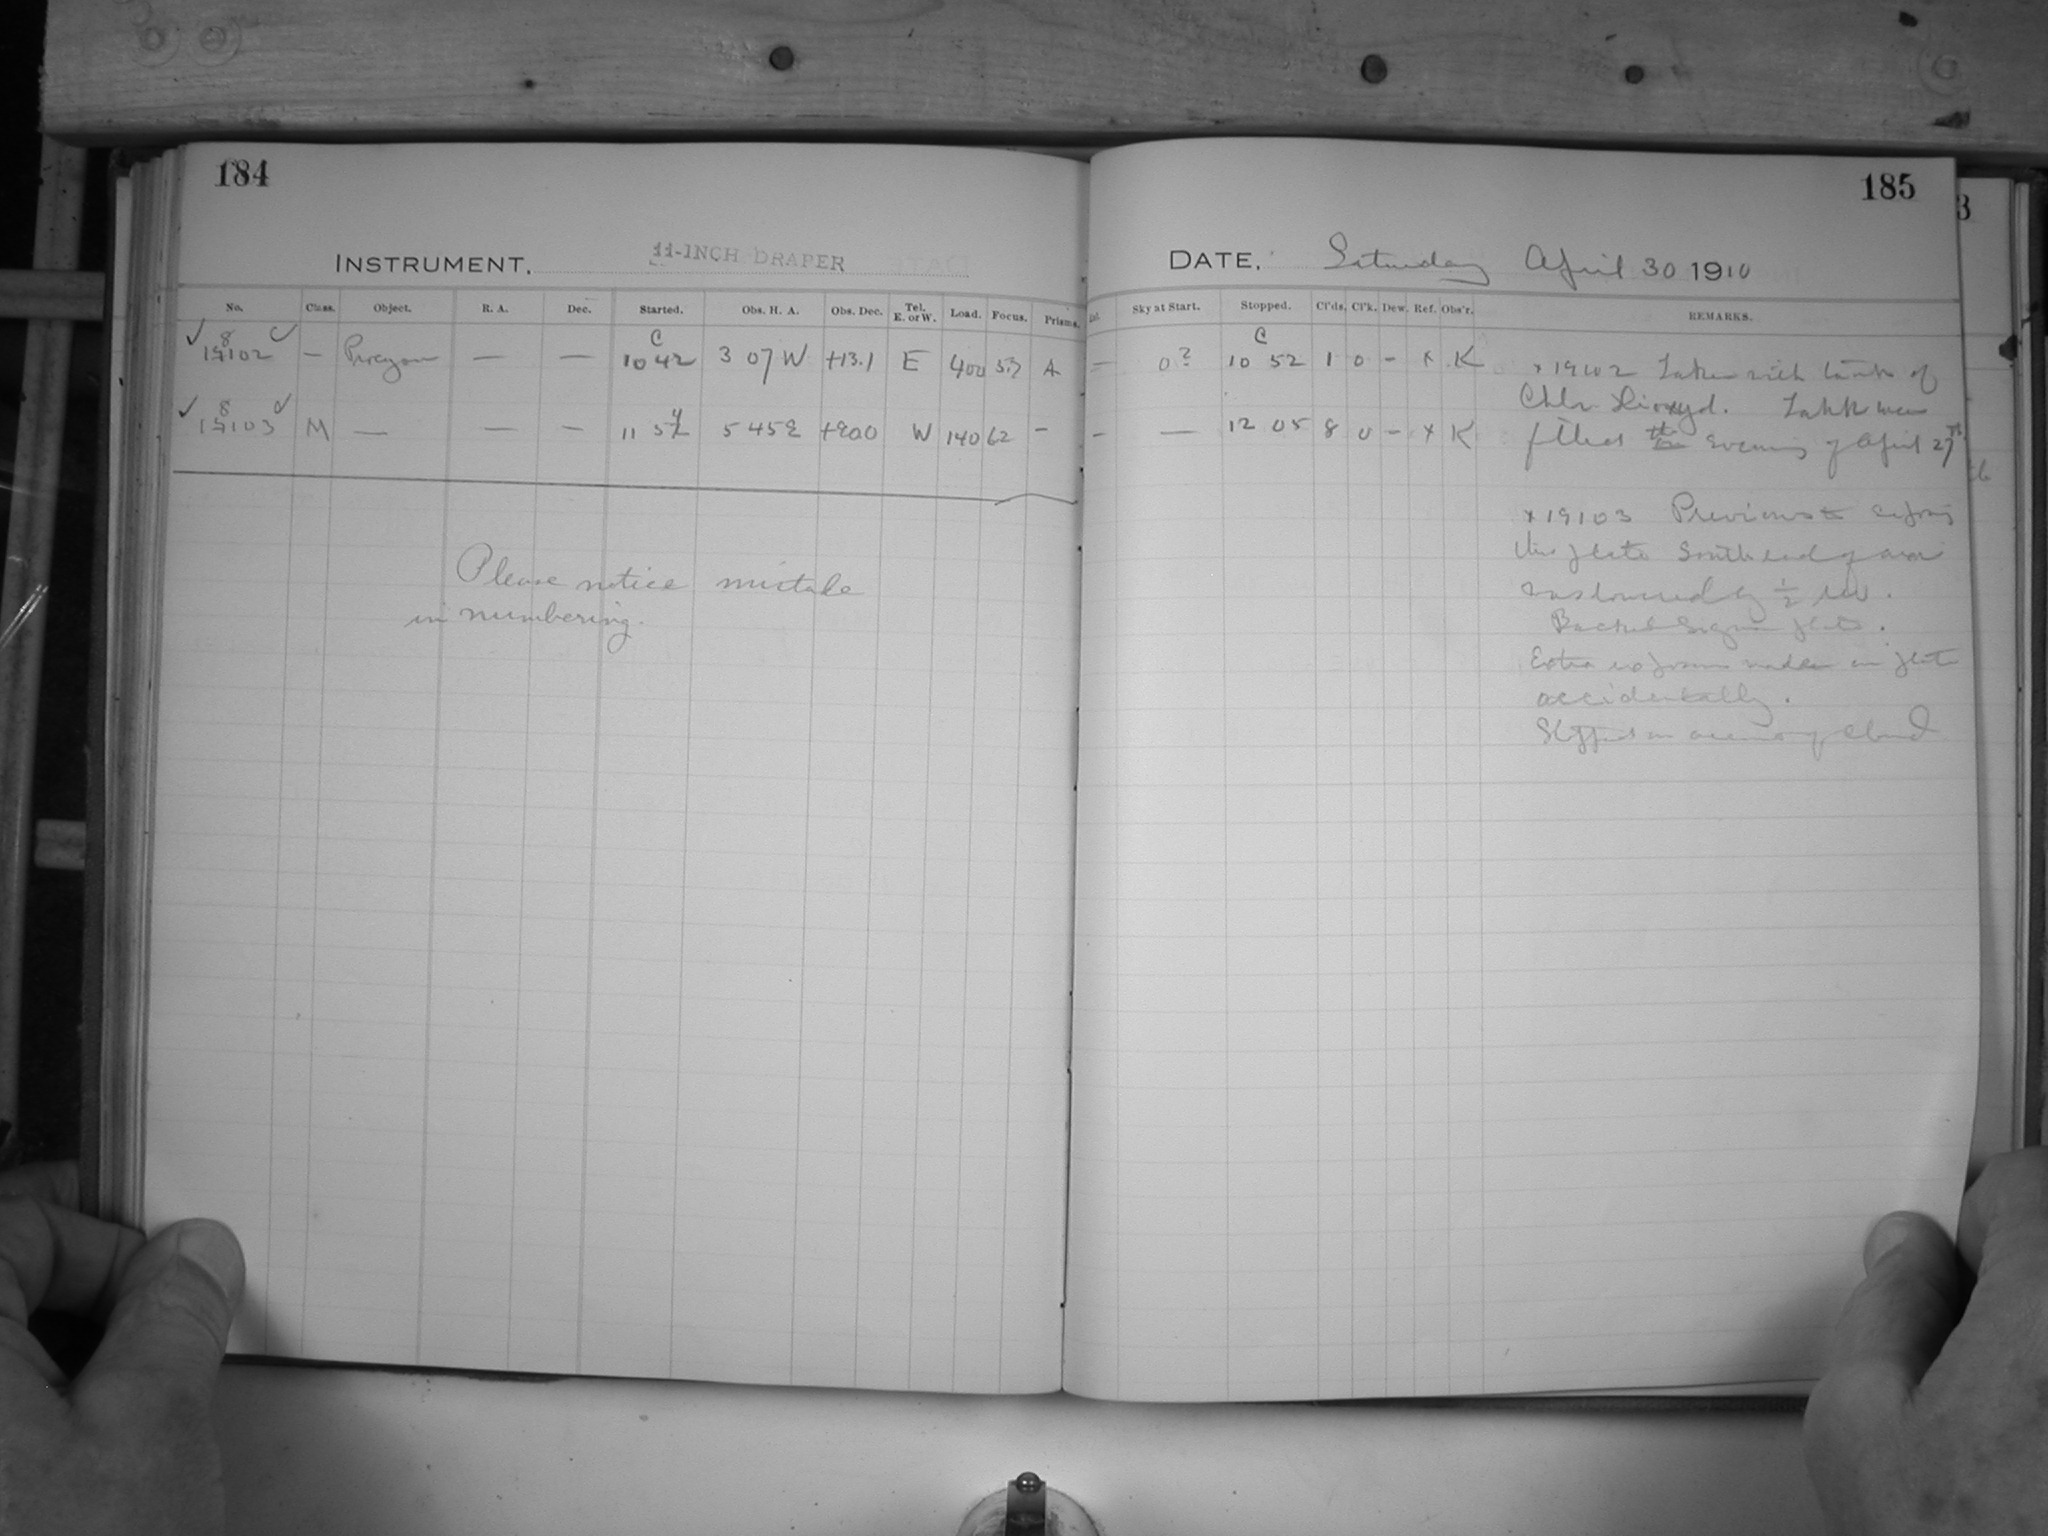 184
INSTRUMENT. 11-INCH DRAPER
No. Class. Object. R. A. Dec. Started. Obs. H. A. Obs. Dec. Tel. E. or W. Load. Focus. Prisms.
✓ 8 ✓ C
19102 — Procyon — — 10 42 3 07 W +13.1 E 400 57 A
✓ 8 ✓
19103 M — — — 11 54 5 45 E +80.0 W 140 62 –
Please notice mistake
in numbering.
185
DATE. Saturday April 30 1910
Sky at Start. Stopped. Cl'ds. Cl'k. Dew. Ref. Obs'r. REMARKS.
C
— 0? 10 52 1 0 – x K
– — 12 05 8 0 – x K
x 19102 Taken with tank of
Chlr. Dioxyd. Tank was
filled the evening of April 27th
x 19103 Previous to
this plate South end of
was lowered by 1/2 rev.
Backed plate.
Extra made on plate
accidentally.
Stopped on account of cloud